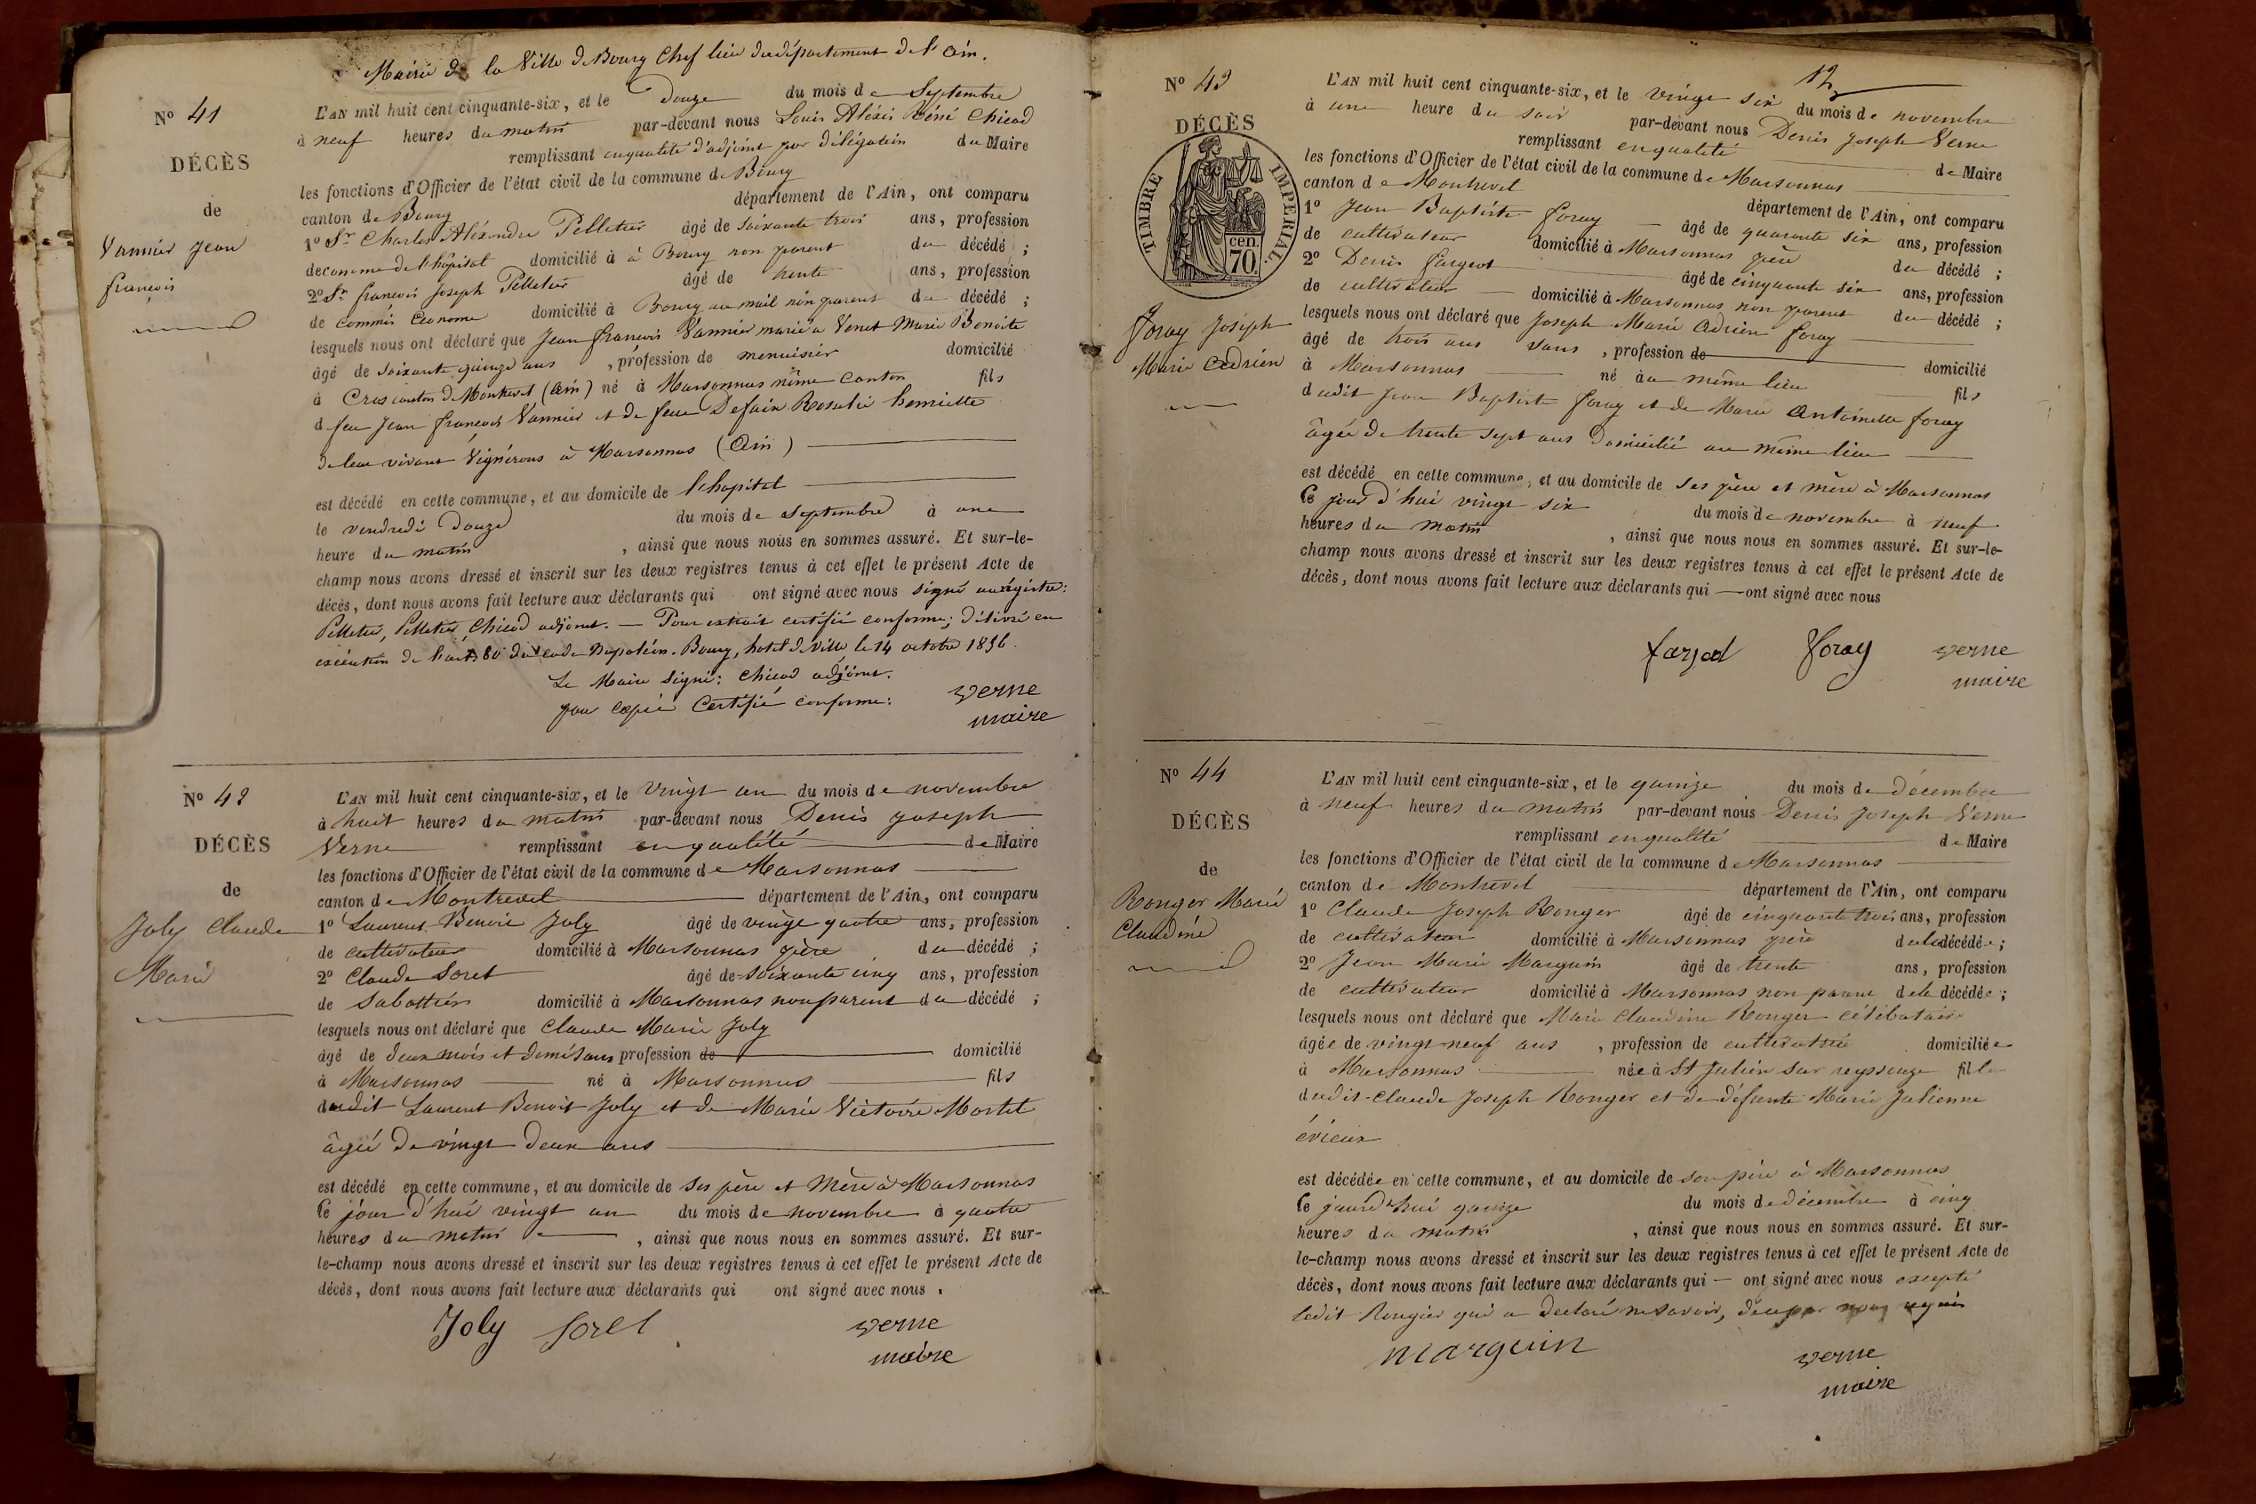 Mairie de la Ville de Bourg Chef lieu du département de l'Ain.
N° 41
DÉCÈS
de
Vannier Jean
françois
L'AN mil huit cent cinquante-six, et le Douze du mois de Septembre
à neuf heures du matin par-devant nous Louis Aléxis Réné Chicod
remplissant enqualité d'adjoint par délégation du Maire
les fonctions d'Officier de l'état civil de la commune de Bourg
canton de Bourg département de l'Ain, ont comparu
1° Sr Charles Aléxandre Pelletier âgé de soixante trois ans, profession
déconome de l'hôpital domicilié à à Bourg non parent du décédé ;
2° Sr françois Joseph Pelletier âgé de trente ans, profession
de commis économe domicilié à Bourg au mail non parent du décédé ;
lesquels nous ont déclaré que Jean françois Vannier marié à Venet Marie Benoite
âgé de soixante quinze ans , profession de menuisier domicilié
à Cras canton de Montrevel (Ain) né à Marsonnas même canton fils
d feu Jean françois Vannier et de feue Defaix Rosalie henriette
de leur vivant Vignérons à Marsonnas (Ain)
est décédé en cette commune, et au domicile de l'hopital
le vendredi Douze du mois de septembre à une
heure du matin , ainsi que nous nous en sommes assuré. Et sur-le-
champ nous avons dressé et inscrit sur les deux registres tenus à cet effet le présent Acte de
décès, dont nous avons fait lecture aux déclarants qui ont signé avec nous signé au régistre:
Pelletier, Pelletier, Chicod adjoint. — Pour extrait certifié conforme; délivré en
exécution de l'art. 80 du code Napoléon. Bourg, hotel de Ville le 14 octobre 1856.
Le Maire Signé: Chicod adjoint.
pour copie Certifié conforme:
verne
maire
N° 42
DÉCÈS
de
Joly Claude
Marie
L'AN mil huit cent cinquante-six, et le vingt un du mois de novembre
à huit heures du matin par-devant nous Denis Joseph
Verne remplissant en qualité de Maire
les fonctions d'Officier de l'état civil de la commune de Marsonnas
canton de Montrevel département de l'Ain, ont comparu
1° Laurent Benoit Joly âgé de vingt quatre ans, profession
de cultivateur domicilié à Marsonnas père du décédé ;
2° Claude Soret âgé de soixante cinq ans, profession
de Sabottier domicilié à Marsonnas non parent du décédé ;
lesquels nous ont déclaré que Claude Marie Joly
âgé de deux mois et demi ans profession de domicilié
à Marsonnas né à Marsonnas fils
dudit Laurent Benoit Joly et de Marie Victoire Mortel
âgée de vingt deux ans
est décédé en cette commune, et au domicile de ses père et Mère à Marsonnas
Ce jour d'hui vingt un du mois de novembre à quatre
heures du matin , ainsi que nous nous en sommes assuré. Et sur-
le-champ nous avons dressé et inscrit sur les deux registres tenus à cet effet le présent Acte de
décès, dont nous avons fait lecture aux déclarants qui ont signé avec nous .
Joly Soret verne
maire
12
N° 43
DÉCÈS
TIMBRE IMPÉRIAL
cen.
70.
foray Joseph
Marie Adrien
L'AN mil huit cent cinquante-six, et le vingt six du mois de novembre
à une heure du soir par-devant nous Denis Joseph Verne
remplissant en qualité de Maire
les fonctions d'Officier de l'état civil de la commune de Marsonnas
canton de Montrevel département de l'Ain, ont comparu
1° Jean Baptiste foray âgé de quarante six ans, profession
de cultivateur domicilié à Marsonnas père du décédé ;
2° Denis fargeot âgé de cinquante six ans, profession
de cultivateur domicilié à Marsonnas non parent du décédé ;
lesquels nous ont déclaré que Joseph Marie Adrien foray
âgé de trois ans , profession de domicilié
à Marsonnas né au même lieu fils
dudit Jean Baptiste foray et de Marie Antoinette foray
âgée de trente sept ans domiciliée au même lieu
est décédé en cette commune, et au domicile de ses père et mère à Marsonnas
Ce jour d'hui vingt six du mois de novembre à neuf
heures du matin , ainsi que nous nous en sommes assuré. Et sur-le-
champ nous avons dressé et inscrit sur les deux registres tenus à cet effet le présent Acte de
décès, dont nous avons fait lecture aux déclarants qui — ont signé avec nous
foray verne
maire
N° 44
DÉCÈS
de
Ronger Marie
Claudine
L'AN mil huit cent cinquante-six, et le quinze du mois de décembre
à neuf heures du matin par-devant nous Denis Joseph Verne
remplissant en qualité de Maire
les fonctions d'Officier de l'état civil de la commune de Marsonnas
canton de Montrevel département de l'Ain, ont comparu
1° Claude Joseph Ronger âgé de cinquante trois ans, profession
de cultivateur domicilié à Marsonnas père de la décédée ;
2° Jean Marie Marguin âgé de trente ans, profession
de cultivateur domicilié à Marsonnas non parent de la décédée ;
lesquels nous ont déclaré que Marie Claudine Ronger célibataire
âgée de vingt neuf ans , profession de cultivatrice domiciliée
à Marsonnas née à St Julien sur reyssouze fille
dudit Claude Joseph Ronger et de défunte Marie Julienne
évieux
est décédée en cette commune, et au domicile de son père à Marsonnas
Ce jourd'hui quinze du mois de décembre à cinq
heures du matin , ainsi que nous nous en sommes assuré. Et sur-
le-champ nous avons dressé et inscrit sur les deux registres tenus à cet effet le présent Acte de
décès, dont nous avons fait lecture aux déclarants qui — ont signé avec nous excepté
ledit Rongier qui a declaré ne savoir, de ce par nous requis
marguin verne
maire